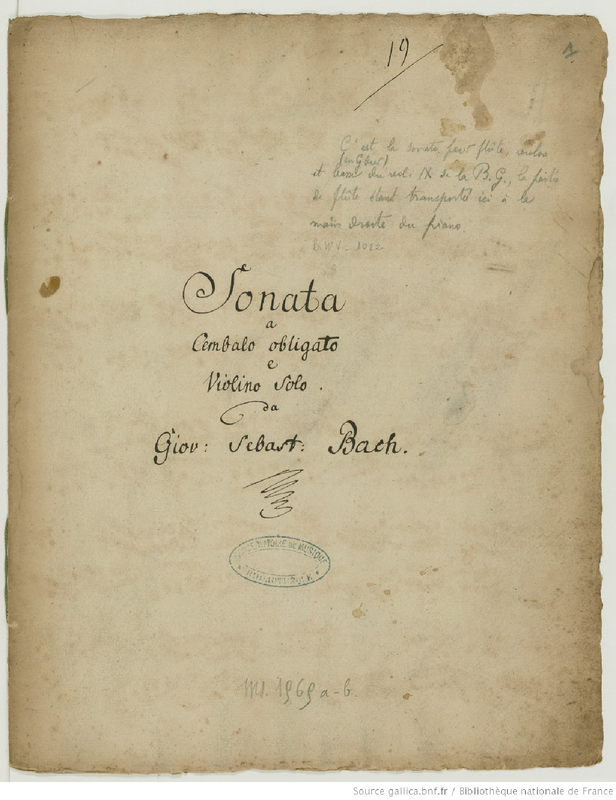 19
1
C'est la sonate pour flûte, violon
(en G dur)
et basse du vol. IX de la B.G., la partie
de flûte étant transportée ici à la
main droite du piano.
BWV. 1022
Sonata
a
Cembalo obligato
e
Violino Solo.
da
Giov: Sebast: Bach.
DE MUSIQUE
Ms. 1969 a-b.
Source gallica.bnf.fr / Bibliothèque nationale de France